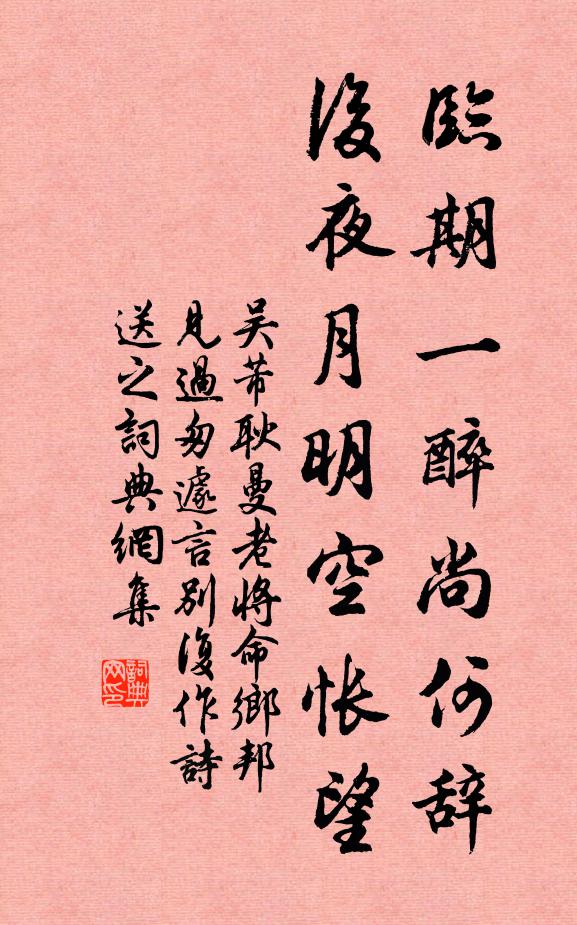 臨期一醉尚何辞
後夜月明空怅望
吴芾耿曼老將命鄉邦
見過匆遽言别復作詩
送之詞典網集
詞典网印